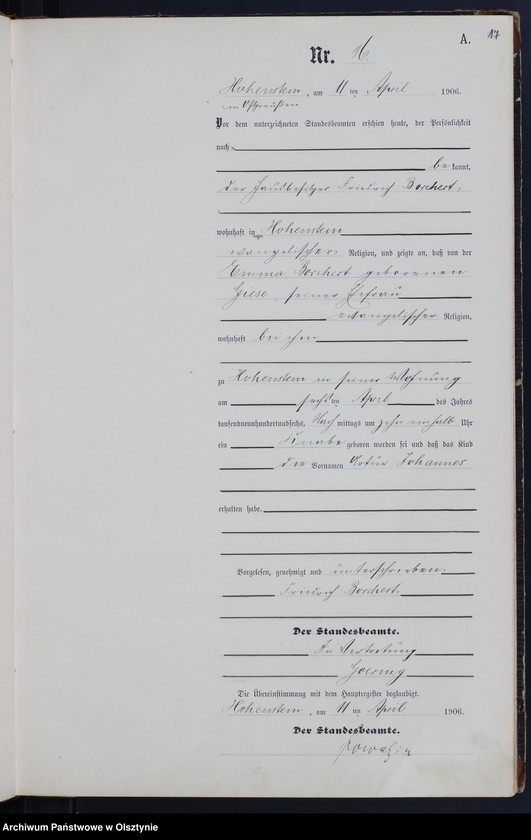 A. 17
Nr. 16
Hohenstein, am 11 ten April 1906.
in Ostpreußen
Vor dem unterzeichneten Standesbeamten erschien heute, der Persönlichkeit
nach
be kannt,
der Hausbesitzer Friedrich Borchert,
wohnhaft in Hohenstein
evangelischer Religion, und zeigte an, daß von der
Emma Borchert geborenen
Giese, seiner Ehefrau
evangelischer Religion,
wohnhaft bei ihm
zu Hohenstein in seiner Wohnung
am sechsten April des Jahres
tausendneunhundertundsechs, Nach mittags um zehn einhalb Uhr
ein Knabe geboren worden sei und daß das Kind
die Vornamen Artur Johannes
erhalten habe.
Vorgelesen, genehmigt und unterschrieben.
Friedrich Borchert.
Der Standesbeamte.
In Vertretung
Goering
Die Übereinstimmung mit dem Hauptregister beglaubigt.
Hohenstein, am 11 ten April 1906.
Der Standesbeamte.
Archiwum Państwowe w Olsztynie